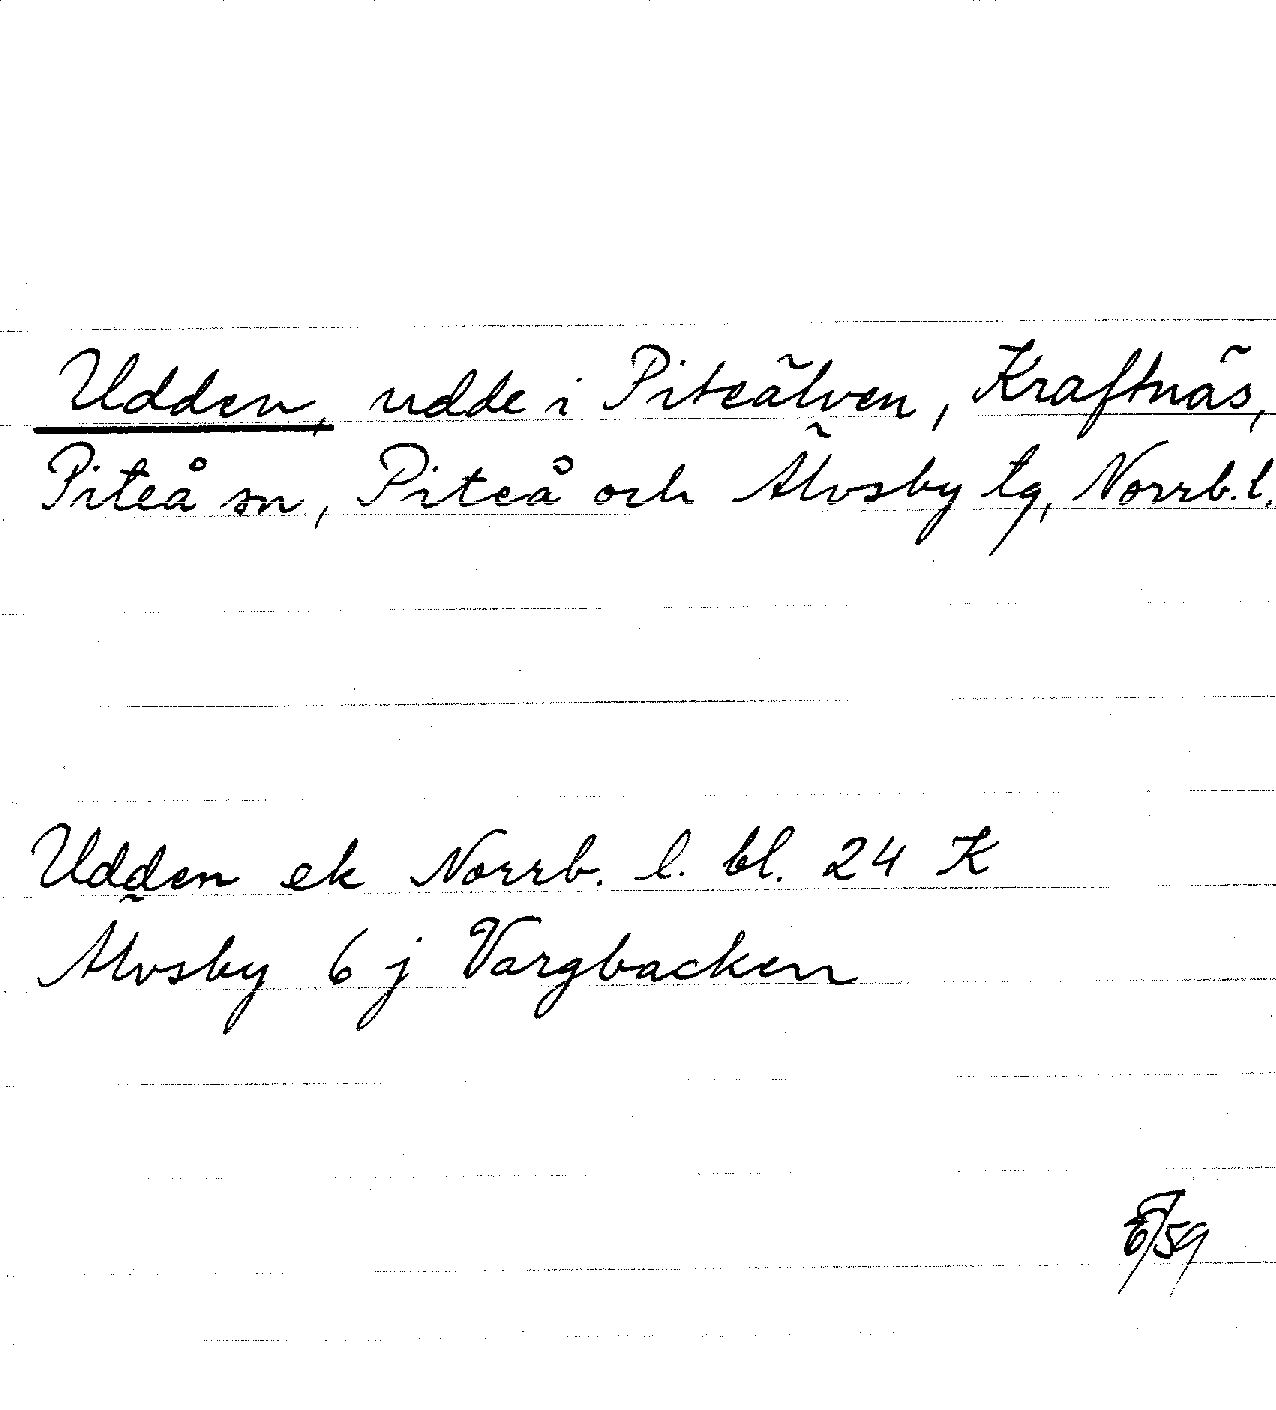 Udden, udde i Piteälven, Kraftnäs,
Piteå sn, Piteå och Älvsby tg, Norrb. l.
Udden ek Norrb. l. bl. 24 K
Älvsby 6 j Vargbacken